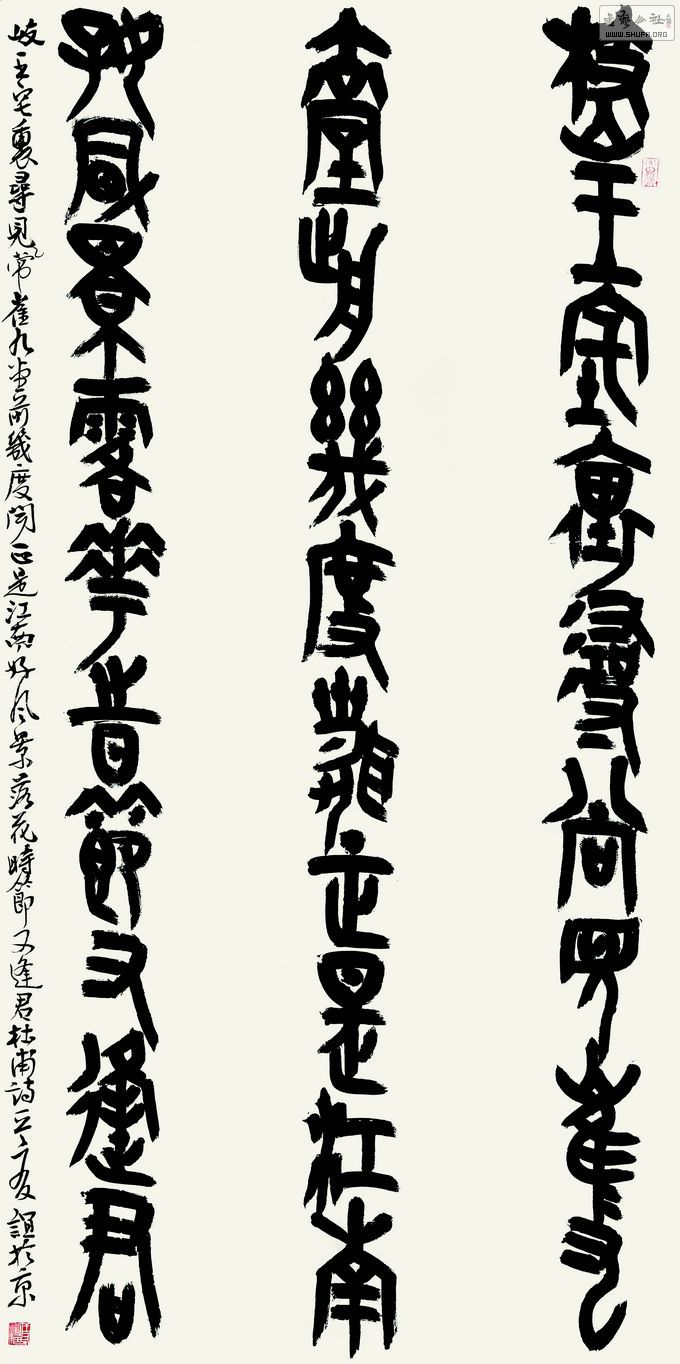 書藝公社
WWW.SHUFA.ORG
岐王宅裏尋常見崔九
堂前幾度聞正是江南
好風景落花時節又逢君
岐王宅裏尋見常崔九堂前幾度聞正是江南好風景落花時節又逢君杜甫詩 誼於京